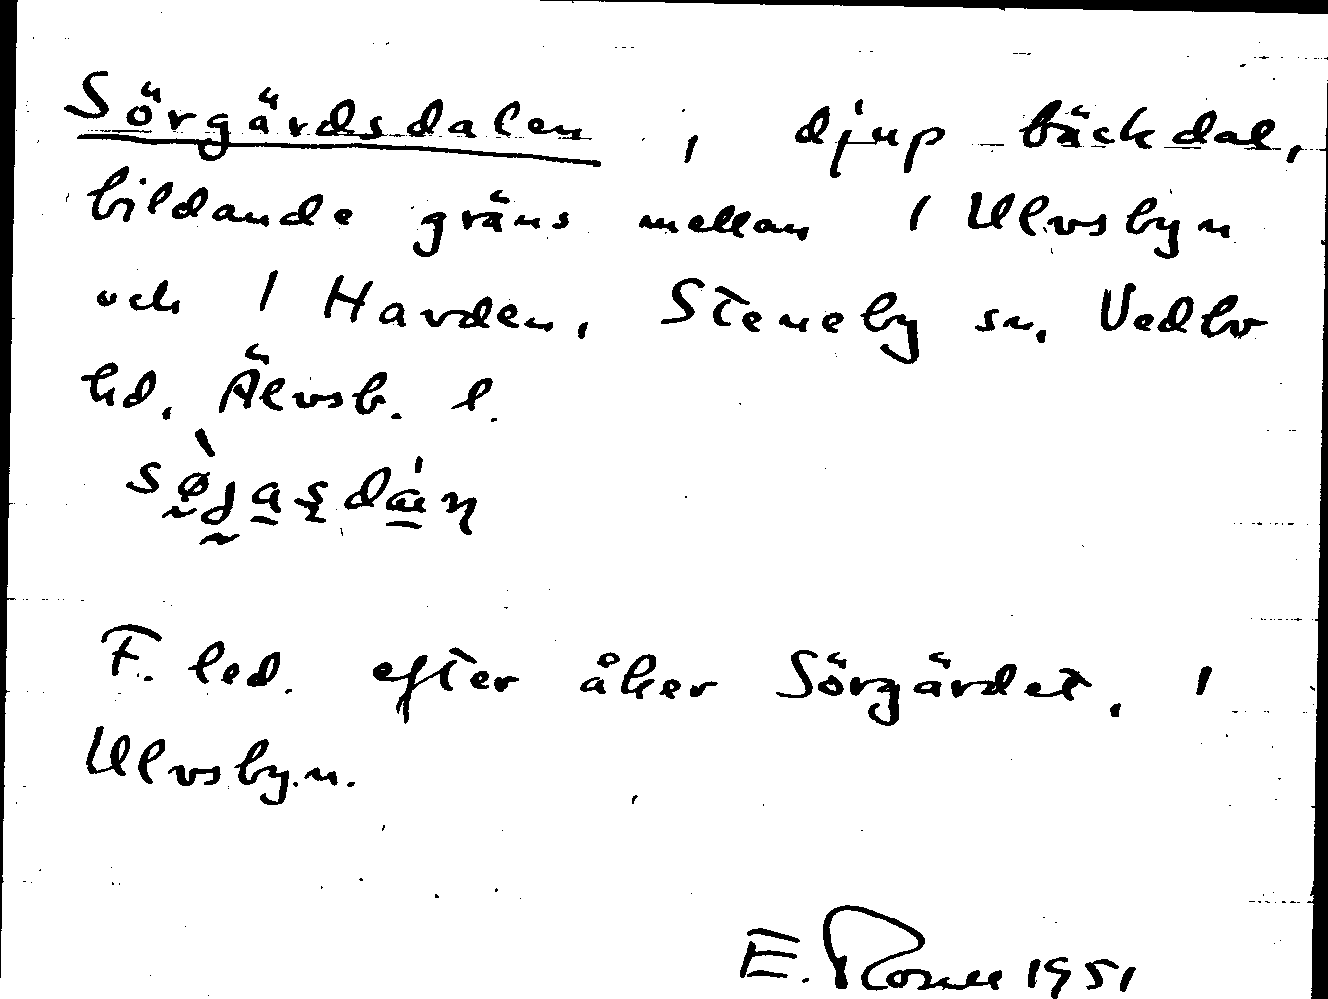 Sörgärdsdalen, djup bäckdal,
bildande gräns mellan 1 Ulvsbyn
och 1 Harden, Steneby sn, Vedbo
hd, Älvsb. l.
F. led. efter åker Sörgärdet, 1
Ulvsbyn.
E. 1951